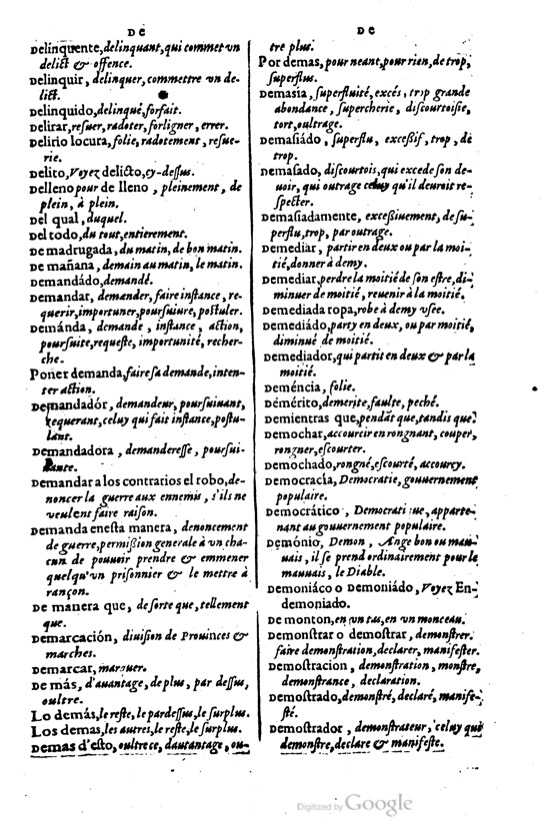 DE
Delinquente, delinquant, qui commet vn
delict & offence.
Delinquir, delinquer, commettre vn de-
lict.
Delinquido, delinqué, forfait.
Delirar, resuer, radoter, forligner, errer.
Delirio locura, folie, radotement, resue-
rie.
Delito, Voyez delicto, cy-dessus.
Delleno pour de lleno, pleinement, de
plein, à plein.
Del qual, duquel.
Del todo, du tout, entierement.
De madrugada, du matin, de bon matin.
De mañana, demain au matin, le matin.
Demandádo, demandé.
Demandar, demander, faire instance, re-
querir, importuner, poursuiure, postuler.
Demánda, demande, instance, action,
poursuite, requeste, importunité, recher-
che.
Poner demanda, faire sa demande, inten-
ter action.
Demandadór, demandeur, poursuiuant,
requerant, celuy qui fait instance, postu-
lant.
Demandadora, demanderesse, poursui-
uante.
Demandar a los contrarios el robo, de-
noncer la guerre aux ennemis, s'ils ne
veulent faire raison.
Demanda enesta manera, denoncement
de guerre, permißion generale à vn cha-
cun de pouuoir prendre & emmener
quelqu'vn prisonnier & le mettre à
rançon.
De manera que, de sorte que, tellement
que.
Demarcación, diuision de Prouinces &
marches.
Demarcar, marquer.
De más, d'auantage, de plus, par dessus,
oultre.
Lo demás, le reste, le pardessus, le surplus.
Los demas, les autres, le reste, le surplus.
Demas d'esto, oultre ce, dauantage, ou-
DE
tre plus.
Por demas, pour neant, pour rien, de trop,
superflus.
Demasía, superfluité, excés, trop grande
abondance, supercherie, discourtoisie,
tort, oultrage.
Demasiádo, superflu, exceßif, trop, de
trop.
Demasado, discourtois, qui excede son de-
uoir, qui outrage celuy qu'il deuroit re-
specter.
Demasiadamente, exceßiuement, de su-
perflu, trop, par outrage.
Demediar, partir en deux ou par la moi-
tié, donner à demy.
Demediar, perdre la moitié de son estre, di-
minuer de moitié, reuenir à la moitié.
Demediada ropa, robe à demy vsee.
Demediádo, party en deux, ou par moitié,
diminué de moitié.
Demediador, qui partit en deux & par la
moitié.
Deméncia, folie.
Démérito, demerite, faulte, peché.
Demientras que, pendãt que, tandis que.
Demochar, accourcir en rongnant, couper,
rongner, escourter.
Demochado, rongné, escourté, accourcy.
Democracía, Democratie, gouuernement
populaire.
Democrático, Democratique, apparte-
nant au gouuernement populaire.
Demónio, Demon, Ange bon ou mau-
uais, il se prend ordinairement pour le
mauuais, le Diable.
Demoniáco o Demoniádo, Voyez En-
demoniado.
De monton, en vn tas, en vn monceau.
Demonstrar o demostrar, demonstrer.
faire demonstration, declarer, manifester.
Demostracion, demonstration, monstre,
demonstrance, declaration.
Demostrado, demonstré, declaré, manife-
sté.
Demostrador, demonstrateur, celuy qui
demonstre, declare & manifeste.
Digitized by Google